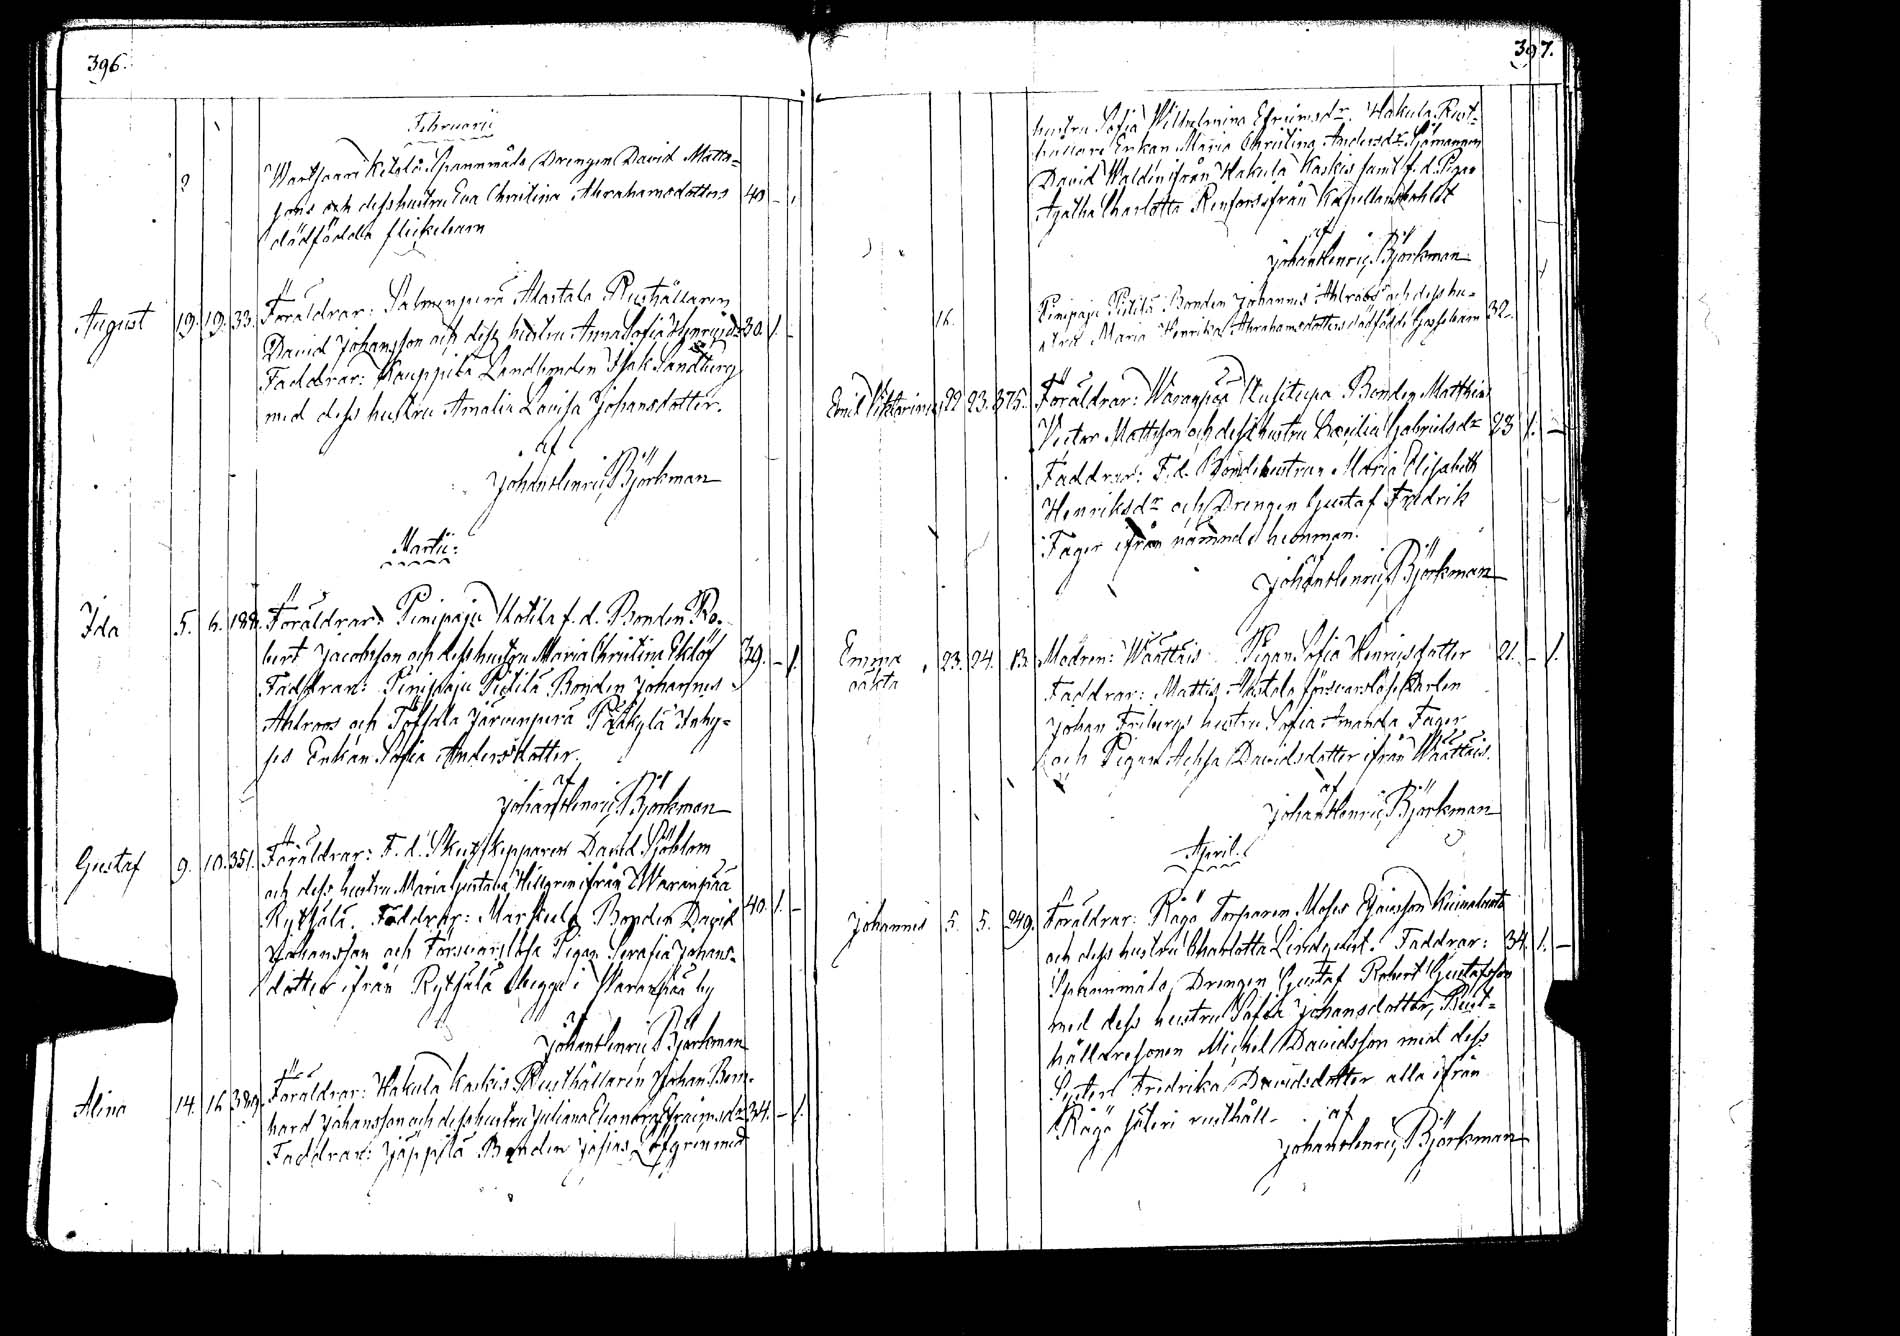 396.
Februarii
2
Wartsaari Ketola Spannmåls Drengen David Matts=
sons och dess hustru Eva Christina Abrahamsdotters 40 - ,
dödfödda flickebarn
August 19. 19. 33. Föräldrar: Salmenperä Alastalo Rusthållaren
David Johansson och dess hustru Anna Sofia Henriksdr 30. 1. -
Faddrar: Kauppila Landbonden Isak Sandberg
med dess hustru Amalia Lovisa Johansdotter.
af
Johan Henric Björkman
Martii:
Ida 5. 6. 188. Föräldrar: Pinipaju Kotila f. d. Bonden Ro-
bert Jacobsson och dess hustru Maria Christina Eklöf 39. - 1.
Faddrar: Pinipaju Pietilä Bonden Johannes
Ahlroos och Töffala Järvenperä Präkylä Inhy=
ses Enkan Sofia Andersdotter.
af
Johan Henric Björkman
Gustaf 9. 10. 351. Föräldrar: F. d. Skutskepparen David Sjöblom
och dess hustru Maria Gustava Hillgren ifrån Waranpää
Rytsälä. Faddrar: Markula Bonden David 40. 1. -
Johansson och Försvarslösa Pigan Serafia Johans-
dotter ifrån Rytsälä begge i Waranpää by
af
Johan Henric Björkman
Alina 14. 16. 389. Föräldrar: Hakula Kaskis Rusthållaren Johan Bern-
hard Johansson och dess hustru Juliana Eleonora Efraimsdr 34. - 1.
Faddrar: Jäppilä Bonden Josias Löfgren med
397.
hustru Sofia Wilhelmina Efraimsdr. Hakula Rust-
hållare Enkan Maria Christina Andersdr. Sjömannen
David Waldén ifrån Hakula Kaskis samt f. d. Pigan
Agatha Charlotta Renfors ifrån Kapellans bohlet
af
Johan Henric Björkman
16. Pinipaju Pietilä Bonden Johannes Ahlroos och dess hu-
stru Maria Henrika Abrahamsdotters dödfödde Gossebarn 32.
Emil Viktorinus 22 23. 375. Föräldrar: Waranpää Uusitupa Bonden Matthias
Victor Mattsson och dess hustru Cæcilia Gabrielsdr 23 1. -
Faddrar: F. d. Bondehustrun Maria Elisabeth
Henriksdr och Drengen Gustaf Fredrik
Fager ifrån nämnde hemman.
af
Johan Henric Björkman
Emma 23. 24. 13. Modren: Wäättäis Pigan Sofia Henriksdotter 21. - 1.
oäkta
Faddrar: Mattis Alastalo försvarslöse Karlen
Johan Fribergs hustru Sofia Amanda Fager
och Pigan Achsa Davidsdotter ifrån Wäättäis.
af
Johan Henric Björkman
April.
Johannes 5. 5. 249. Föräldrar: Rägö Torparen Moses Esaiasson Kuinalanto
och dess hustru Charlotta Lindqvist. Faddrar: 34. 1. -
Spannmåls Drengen Gustaf Robert Gustafsson
med dess hustru Sofia Johansdotter, Rust-
hållaresonen Michel Davidsson med dess
Syster Fredrika Davidsdotter alla ifrån
Rägö säteri rusthåll-
af
Johan Henric Björkman